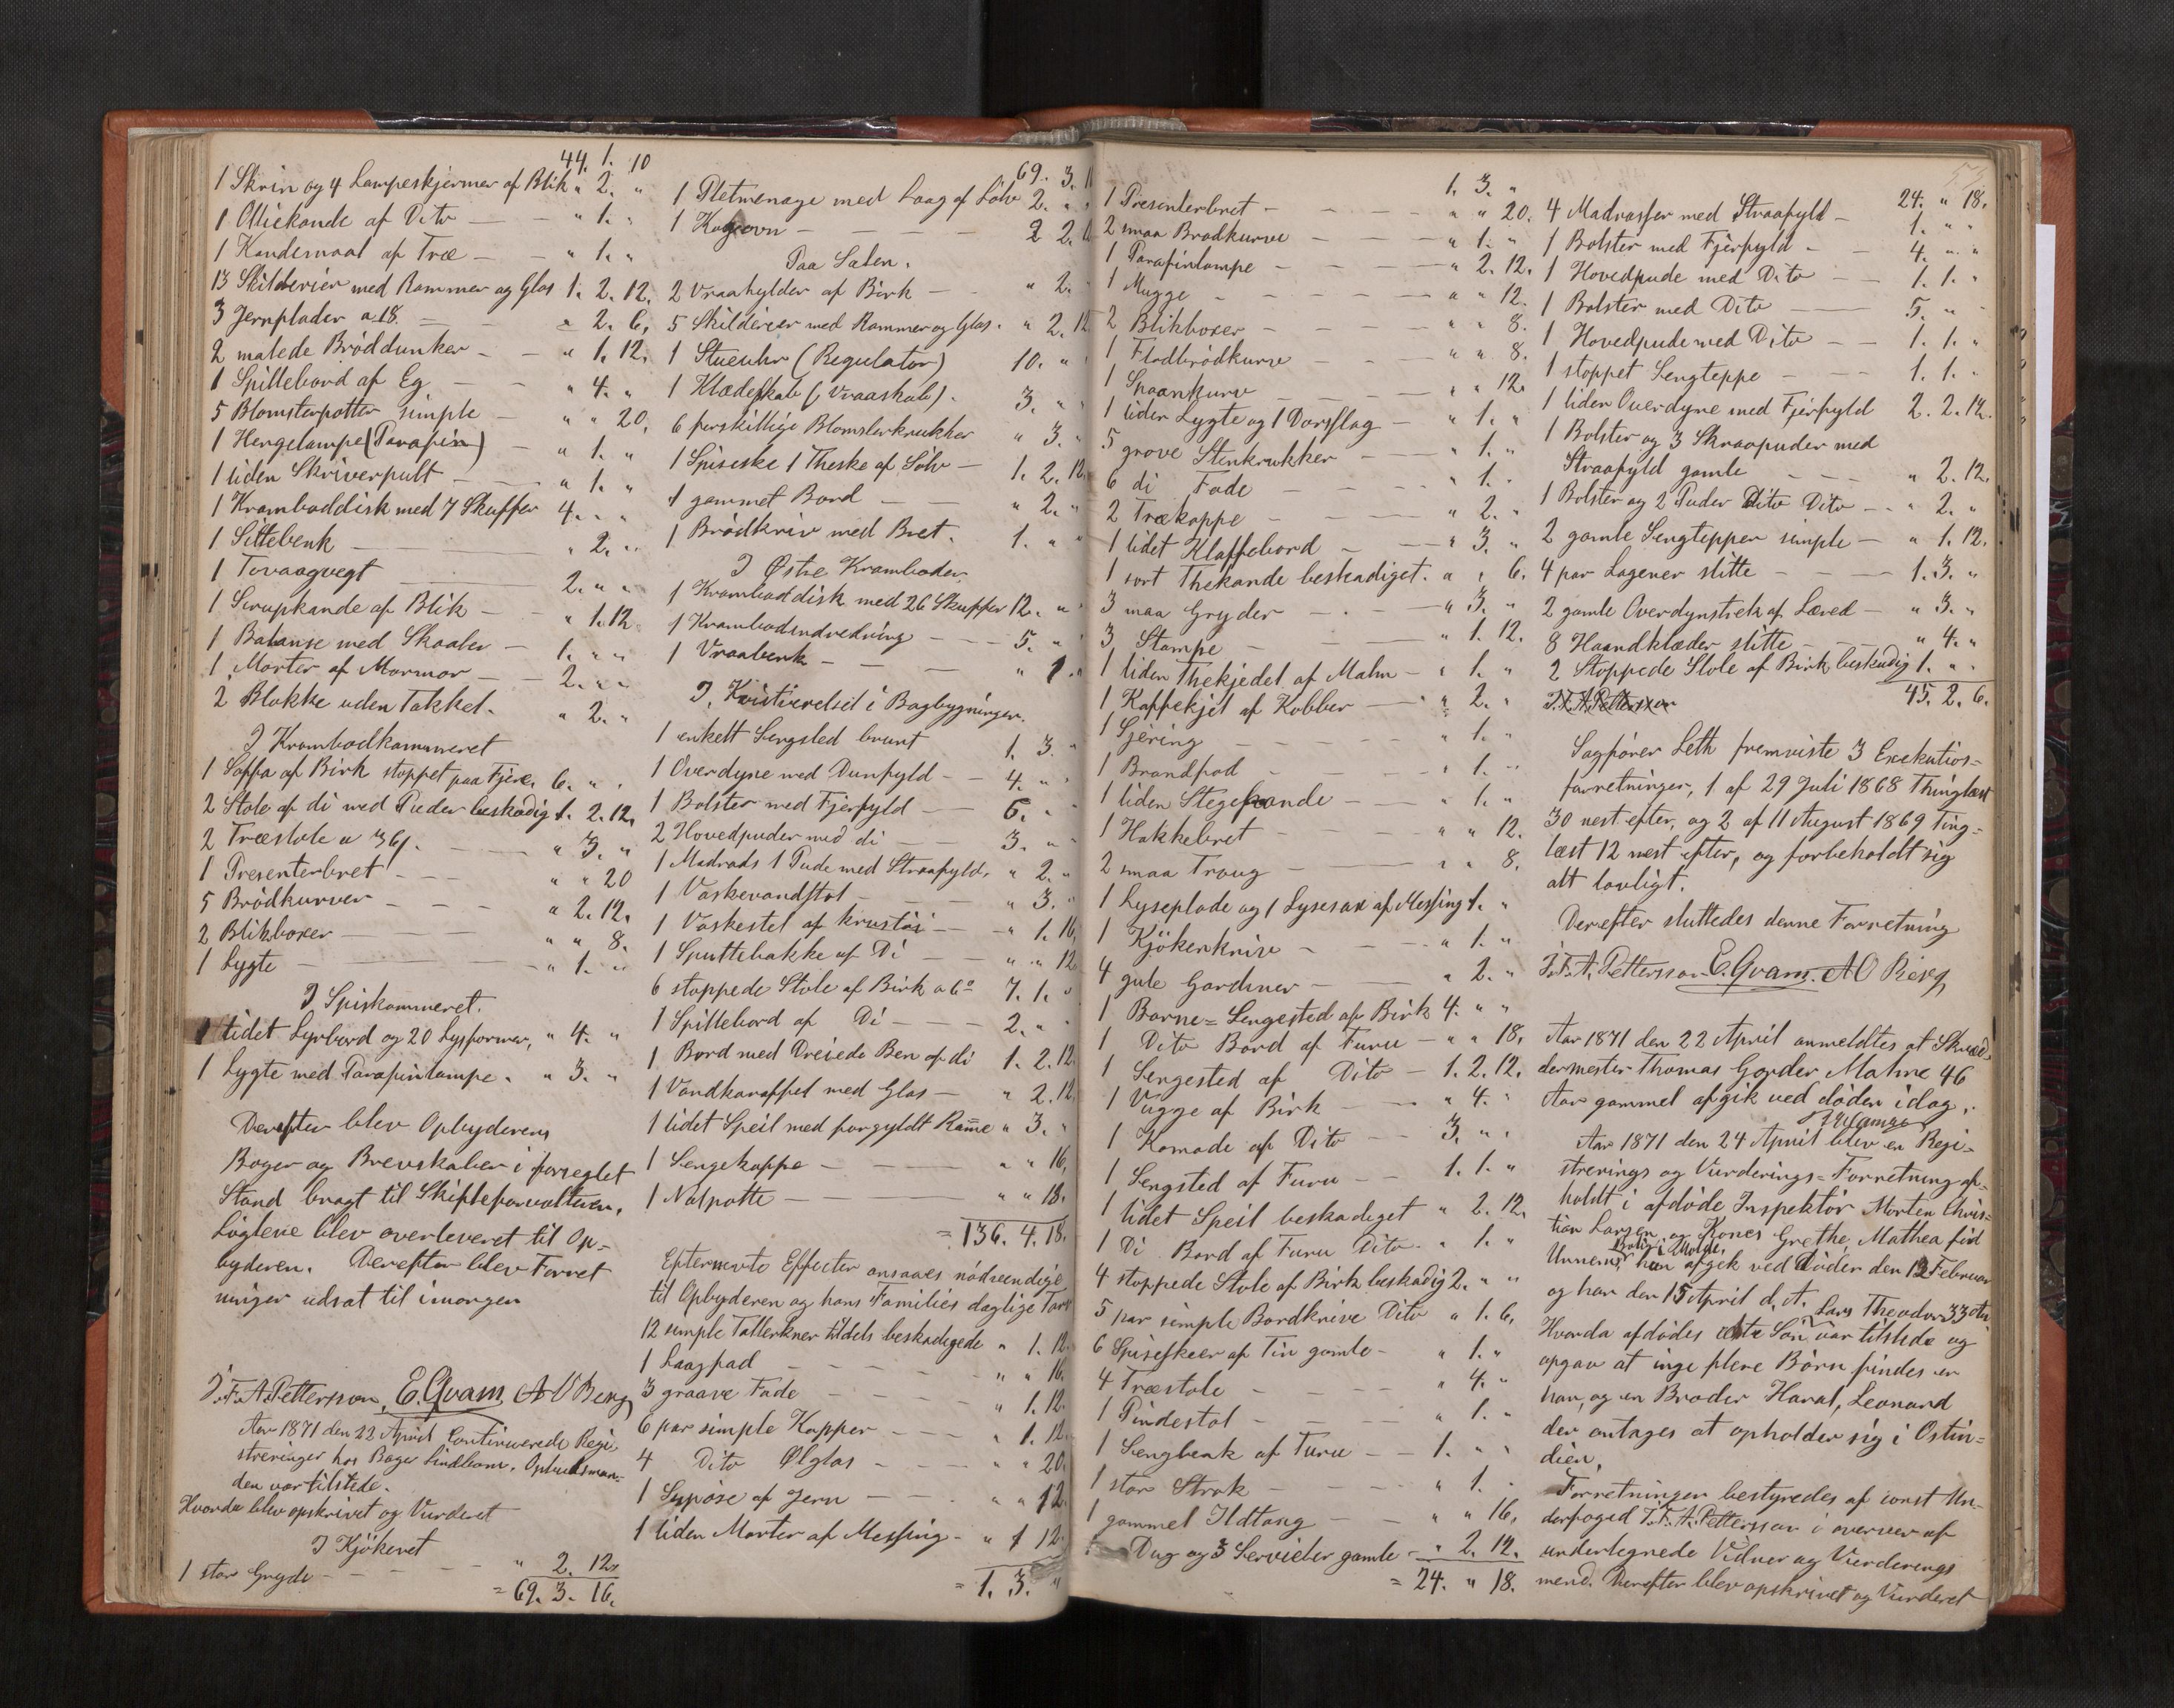 44. 1. 10
1 Skrin og 4 Lampeskjermer af Blik " 2. "
1 Olliekande af Dito — " 1. "
1 Kandemaal af Træ — " 1. "
13 Skilderier med Rammer og Glas 1. 2. 12.
3 Jernplader a 18. — " 2. 6.
2 malede Brøddunker — " 1. 12.
1 Spillebord af Eg — " 4. "
5 Blomsterpotter simple — " " 20.
1 Hengelampe (Parafin) — " 1. "
1 liden Skriverpult — " 1. "
1 Kramboddisk med 7 Skuffer 4. " "
1 Sittebenk — " 2. "
1 Tovaagvegt — 2. " "
1 Sirupkande af Blik — " 1. 12
1 Balanse med Skaaler — 1. " "
1 Morter af Marmor — 2. " "
2 Blokke uden Takkel. " 2. "
I Krambodkammeret
1 Soffa af Birk stoppet paa Fjere 6. " "
2 Stole af di med Puder beskadig 1. 2. 12.
2 Træstole a 36 — " 3. "
1 Presenterbret — " " 20
5 Brødkurver — " 2. 12.
2 Blikboxer — " " 8.
1 Lygte — " 1. "
I Spiskammeret.
1 lidet Lysbord og 20 Lysformer, " 4. "
1 Lygte med Parafinlampe. " 3. "
Derefter blev Opbyderens
Bøger og Brevskaber i forseglet
Stand bragt til Skifteforvalteren.
Løglene blev overleveret til Op-
byderen. Derefter blev Forret
ninger udsat til imorgen
J. F. A. Pettersson, E. Qvam, A O Berg
Aar 1871 den 22 April Continuerede Regi
streringer hos Bager Lindbom. Opbudsman-
den var tilstede.
Hvorda blev opskrivet og Vurderet
I Kjøkenet
1 stor Gryde — " 2. 12.
= 69. 3. 16.
69. 3. 1
1 Pletmenage med Laag af Sølv 2. " "
1 Kogeovn — 2 2.
Paa Salen.
2 Vraahylder af Birk — " 2. "
5 Skilderier med Rammer og Glas. " 2. 12
1 Stueuhr (Regulator) 10. " "
1 Klædeskab (Vraaskab). 3. " "
6 forskillige Blomsterkrukker " 3. "
1 Spiseske 1 Theske af Sølv — 1. 2. 12.
1 gammel Bord — " 2. "
1 Brødkniv med Bret. 1. " "
I Østre Kramboden
1 Kramboddisk med 26 Skuffer 12. " "
1 Krambodindredning — 5. " "
1 Vraabenk — " 1. "
I Kvistverelset i Bagbygningen.
1 enkelt Sengsted brunt 1. 3. "
1 Overdyne med Dunfyld — 4. " "
1 Bolster med Fjerfyld — 6. "
2 Hovedpuder med di — 3. " "
1 Madrads 1 Pude med Straafyld, " 2. "
1 Vaskevandstol — " 3. "
1 Vaskestel af krustøi — " 1. 16,
1 Sputtebakke af Di — " " 12
6 stoppede Stole af Birk a 6° 7. 1. "
1 Spillebord af Di — 2. " "
1 Bord med Dreiede Ben af di 1. 2. 12.
1 Vandkaraffel med Glas — " 2. 12.
1 lidet Speil med forgyldt Rame " 3. "
1 Sengekappe — " " 16,
1 Natpotte — " " 18.
= 136. 4. 18.
Efternevte Effecter ansaaes nødvendige
til Opbyderen og hans Families daglige Tarv
12 simple Tallerkner tildels beskadigede " 1. 12.
1 Laagfad — " " 16.
3 graave Fade — " 1. 12.
6 par simple Kopper — " 1. 12.
4 Dito Ølglas — " " 20.
1 Supøse af Jern — " " 12.
1 liden Morter af Messing — " 1 12.
= 1. 3. "
1. 3. "
1 Presenterbret — " " 20.
2 smaa Brødkurve — " 1. "
1 Parafinlampe — " 2. 12.
1 Mugge — " " 12.
2 Blikboxer — " " 8.
1 Fladbrødkurv — " " 8.
1 Spaankurv — " " 12.
1 liden Lygte og 1 Dørslag — " 1. "
5 grove Stenkrukker — " 1. "
6 di Fade — " 1. "
2 Trækoppe — " 2. "
1 lidet Klaffebord — " 3. "
1 sort Thekande beskadiget. " " 6.
3 smaa Gryder — " 3. "
3 Stampe — " 1. 12.
1 liden Thekjedel af Malm — " 1. "
1 Kaffekjel af Kobber — " 2. "
1 Gjering — " 1. "
1 Brandfad — " 1. "
1 liden Stegepande — " 1. "
1 Hakkebret — " " 12.
2 smaa Troug — " " 8.
1 Lyseplade og 1 Lysesax af Messing 1. "
1 Kjøkenkniv — " 1. "
4 gule Gardiner — " 2. "
1 Barne= Sengested af Birk 4. " "
1 Dito Bord af Furu — " " 18.
1 Sengested af Dito — 1. 2. 12.
1 Vugge af Birk — " 4. "
1 Komode af Dito — 3. " "
1 Sengsted af Furu — 1. 1. "
1 lidet Speil beskadiget " 2. 12.
1 Di Bord af Furu Dito. " 1. "
4 stoppede Stole af Birk beskadig 2. " "
5 par simple Bordknive Dito " 1. 6,
6 Spiseskeer af Tin gamle — " 1. "
4 Træstole — " 4. "
1 Pindestol — " 1. "
1 Sengbenk af Furu — 1. " "
1 stor Strok — " 1. "
1 gammel Ildtang — " " 16,
Dug og 3 Servieter gamle — " 2. 12.
= 24. " 18.
24. " 18.
4 Madrasser med Straafyld — 1. " "
1 Bolster med Fjerfyld — 4. " "
1 Hovedpude med Dito — 1. 1. "
1 Bolster med Dito — 5. " "
1 Hovedpude med Dito — 1. 1. "
1 stoppet Sengteppe — 1. 1. "
1 liden Overdyne med Fjerfyld 2. 2. 12.
1 Bolster og 3 Skraapuder med
Straafyld gamle — " 2. 12.
1 Bolster og 2 Puder Dito Dito — " 2. "
2 gamle Sengtepper simple — " 1. 12.
4 par Lagener slitte — 1. 3. "
2 gamle Overdynstrek af Lærred — " 3. "
8 Haandklæder slitte — " 4. "
2 Stoppede Stole af Birk beskadig 1. " "
J. F. A. Pettersson 45. 2. 6.
Sagfører Leth fremviste 3 Exekutios=
forretninger, 1 af 29 Juli 1868 Thinglæst
30 nest efter, og 2 af 11 August 1869 Ting=
læst 12 nest efter, og forbeholdt sig
alt lovligt.
Derefter sluttedes denne Forretning
J. F. A. Pettersson E. Qvam. A O Berg
Aar 1871 den 22 April anmeldtes at Skræd-
dermester Thomas Gorder Malme 46
Aar gammel afgik ved døden idag.
Aar 1871 den 24 April blev en Regi-
strerings og Vurderings=Forretning af-
holdt i afdøde Inspektør Morten Chris-
tian Larsen og Kones Grethe Mathea fød
Bolig i Molde,
Unnem, hun afgik ved Døden den 12 Februar
og han den 15 April d. A. Lars Theodor 33 Aar
Hvorda afdødes ælste Søn var tilstede og
opgav at inge flere Børn findes en
han, og en Broder Haral, Leonard
der antages at opholder sig i Ostin=
dien.
Forretningen bestyredes af const Un-
derfoged J. F. A. Pettersson i overver af
undertegnede Vidner og Vurderings
mend. Derefter blev opskrivet og Vurderet